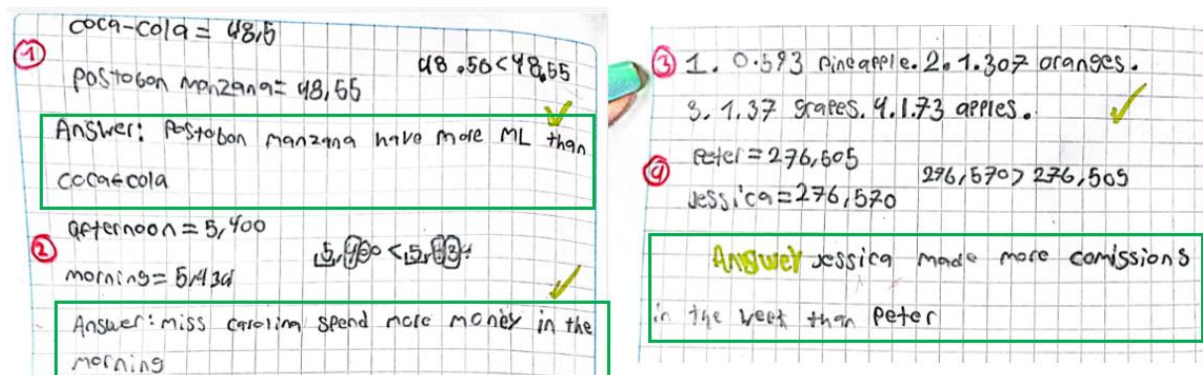 coca-cola = 48,5
①
48.50<48,55
Postobon manzana= 48,55
Answer: Postobon manzana have more ML than
coca-cola
afternoon = 5,400
②
5,400 < 5,434
morning= 5,434
Answer: miss carolina spend more money in the
morning
③ 1. 0.593 Pineapple. 2. 1.307 oranges.
3. 1.37 grapes. 4. 1.73 apples.
④ Peter = 276,505
276,570> 276,505
Jessica= 276,570
Answer Jessica made more comissions
in the week than Peter